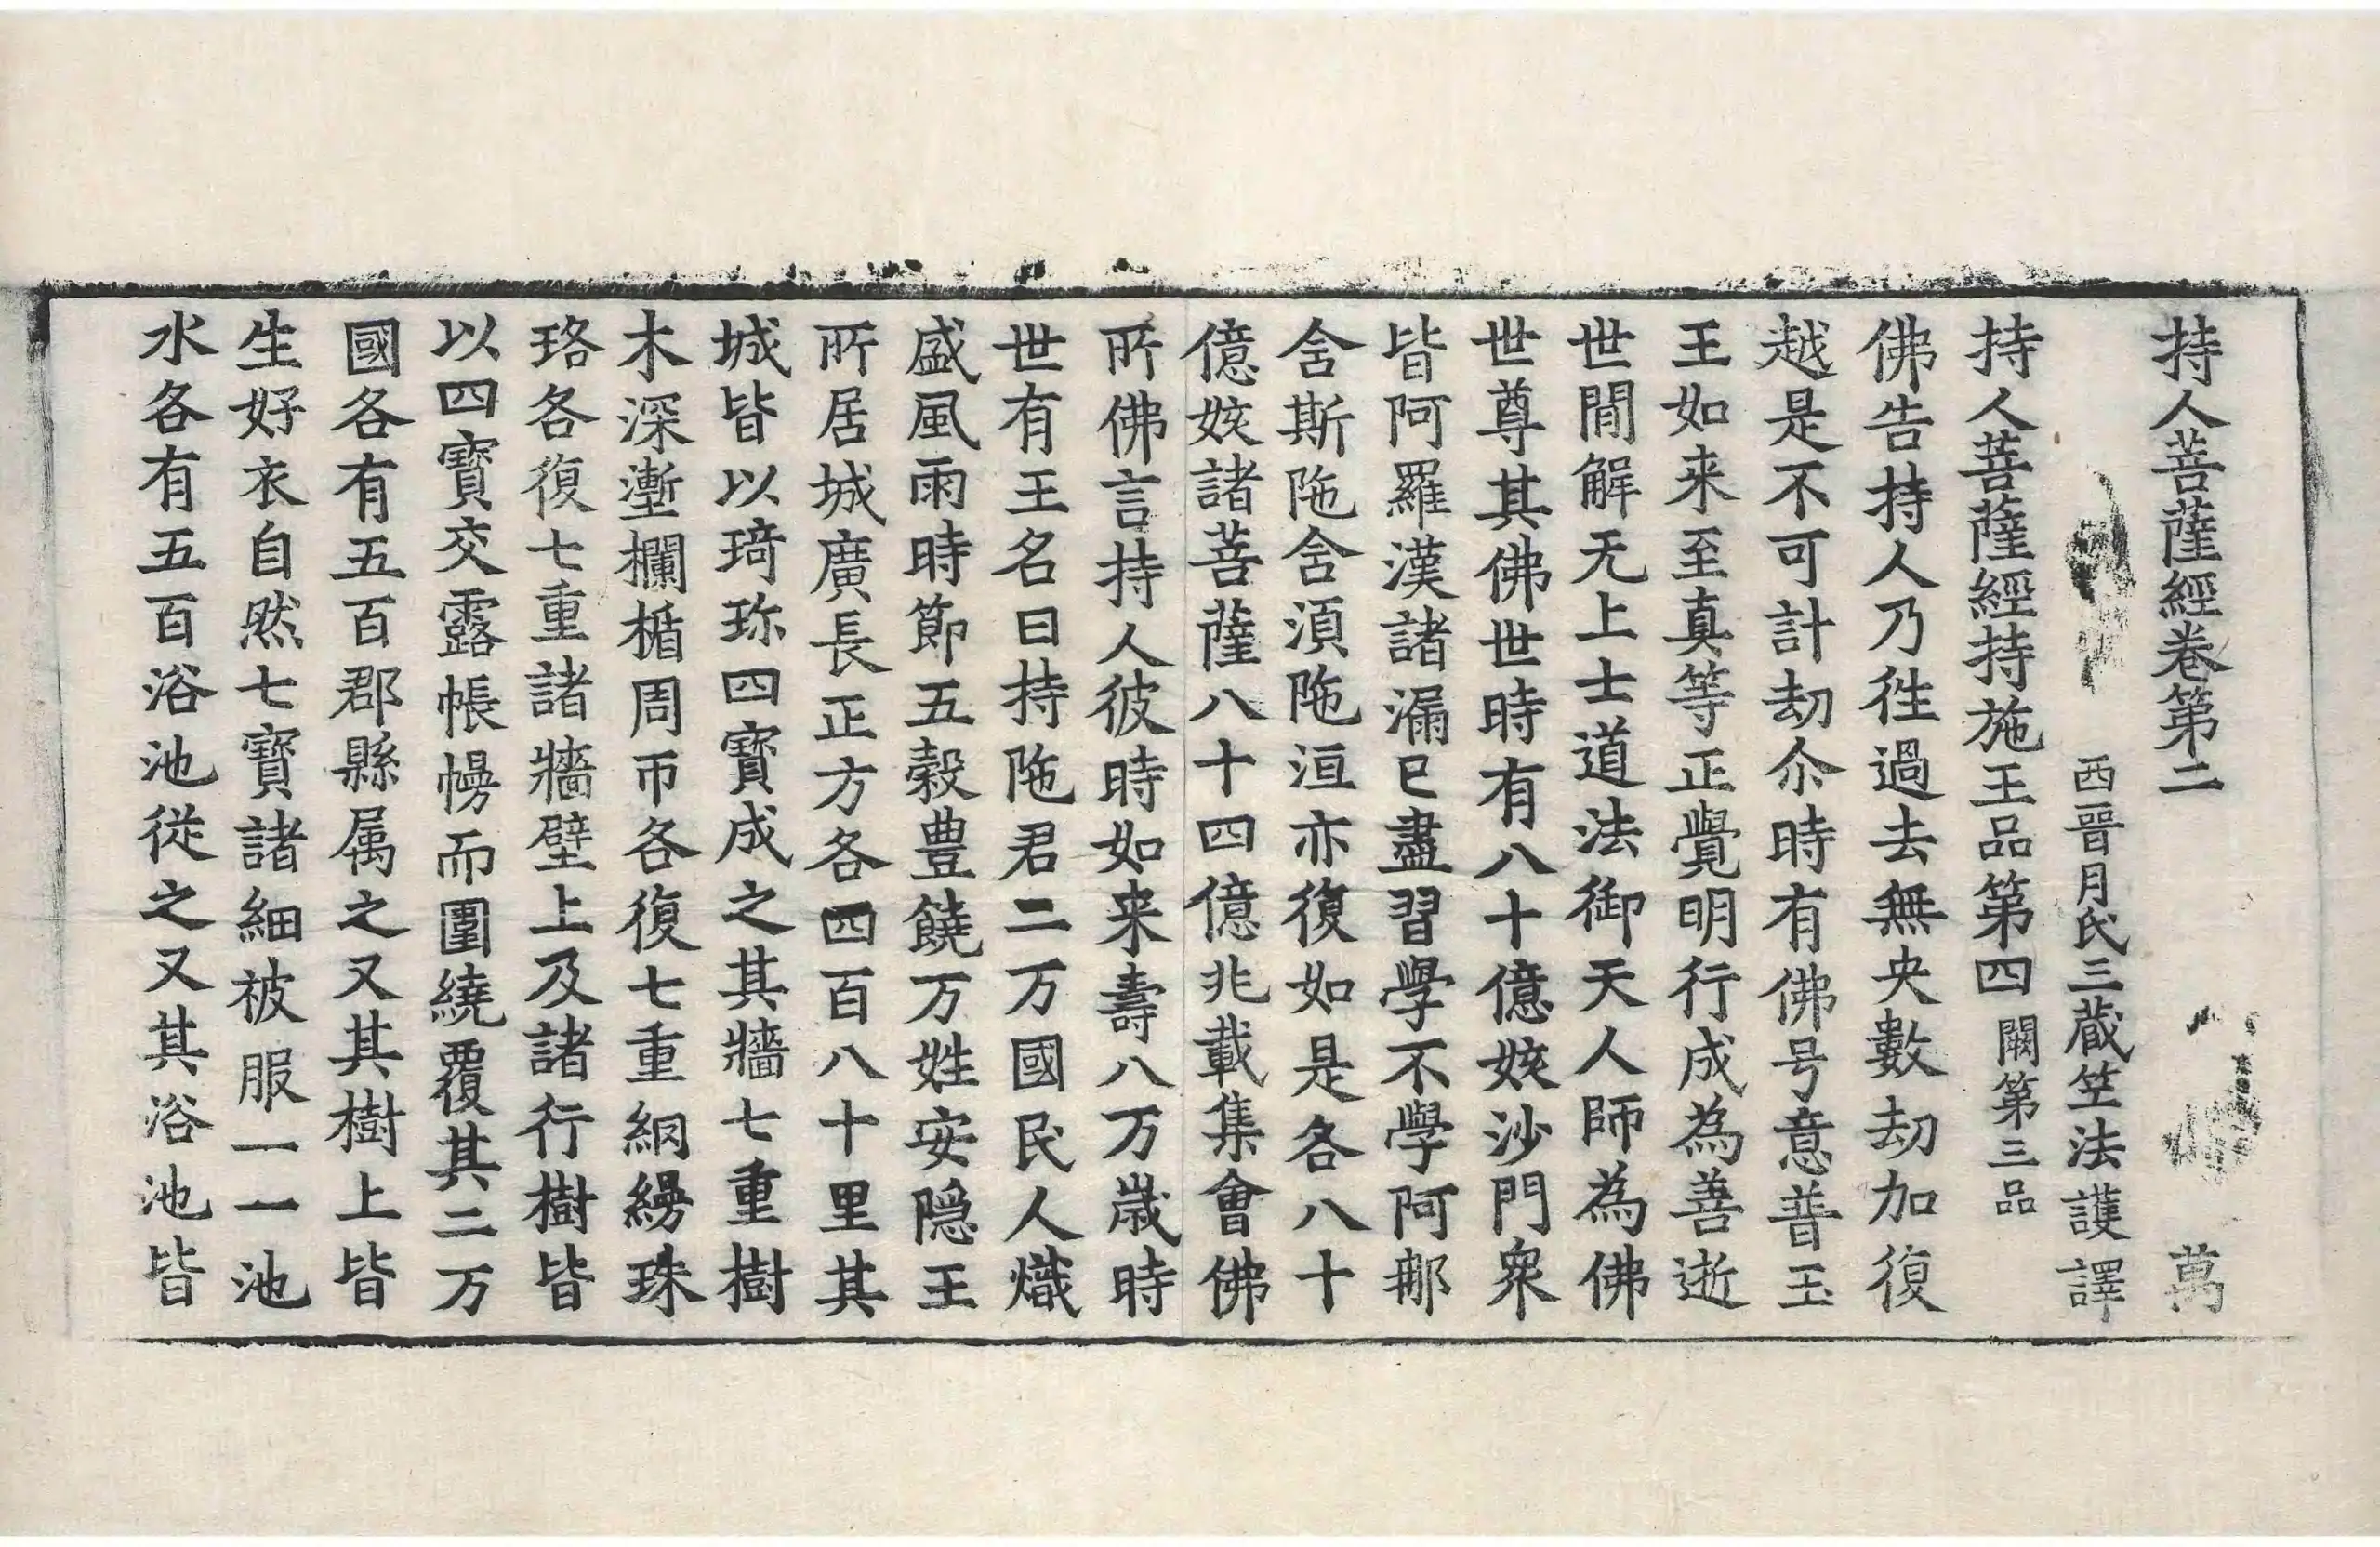 持人菩薩經卷第二 萬
西晉月氏三藏竺法護譯
持人菩薩經持施王品第四 闕第三品
佛告持人乃徃過去無央數劫加復
越是不可計劫尒時有佛号意普玉
王如来至真等正覺明行成為善逝
世閒解无上士道法御天人師為佛
世尊其佛世時有八十億姟沙門衆
皆阿羅漢諸漏已盡習學不學阿那
含斯陁含湏陁洹亦復如是各八十
億姟諸菩薩八十四億兆載集會佛
所佛言持人彼時如来壽八万歲時
世有王名曰持陁君二万國民人熾
盛風雨時節五穀豊饒万姓安隠王
所居城廣長正方各四百八十里其
城皆以琦珎四寶成之其牆七重樹
木深壍欄楯周帀各復七重網縵珠
珞各復七重諸牆壁上及諸行樹皆
以四寶交露帳幔而圍繞覆其二万
國各有五百郡縣属之又其樹上皆
生好衣自然七寶諸細被服一一池
水各有五百浴池從之又其浴池皆